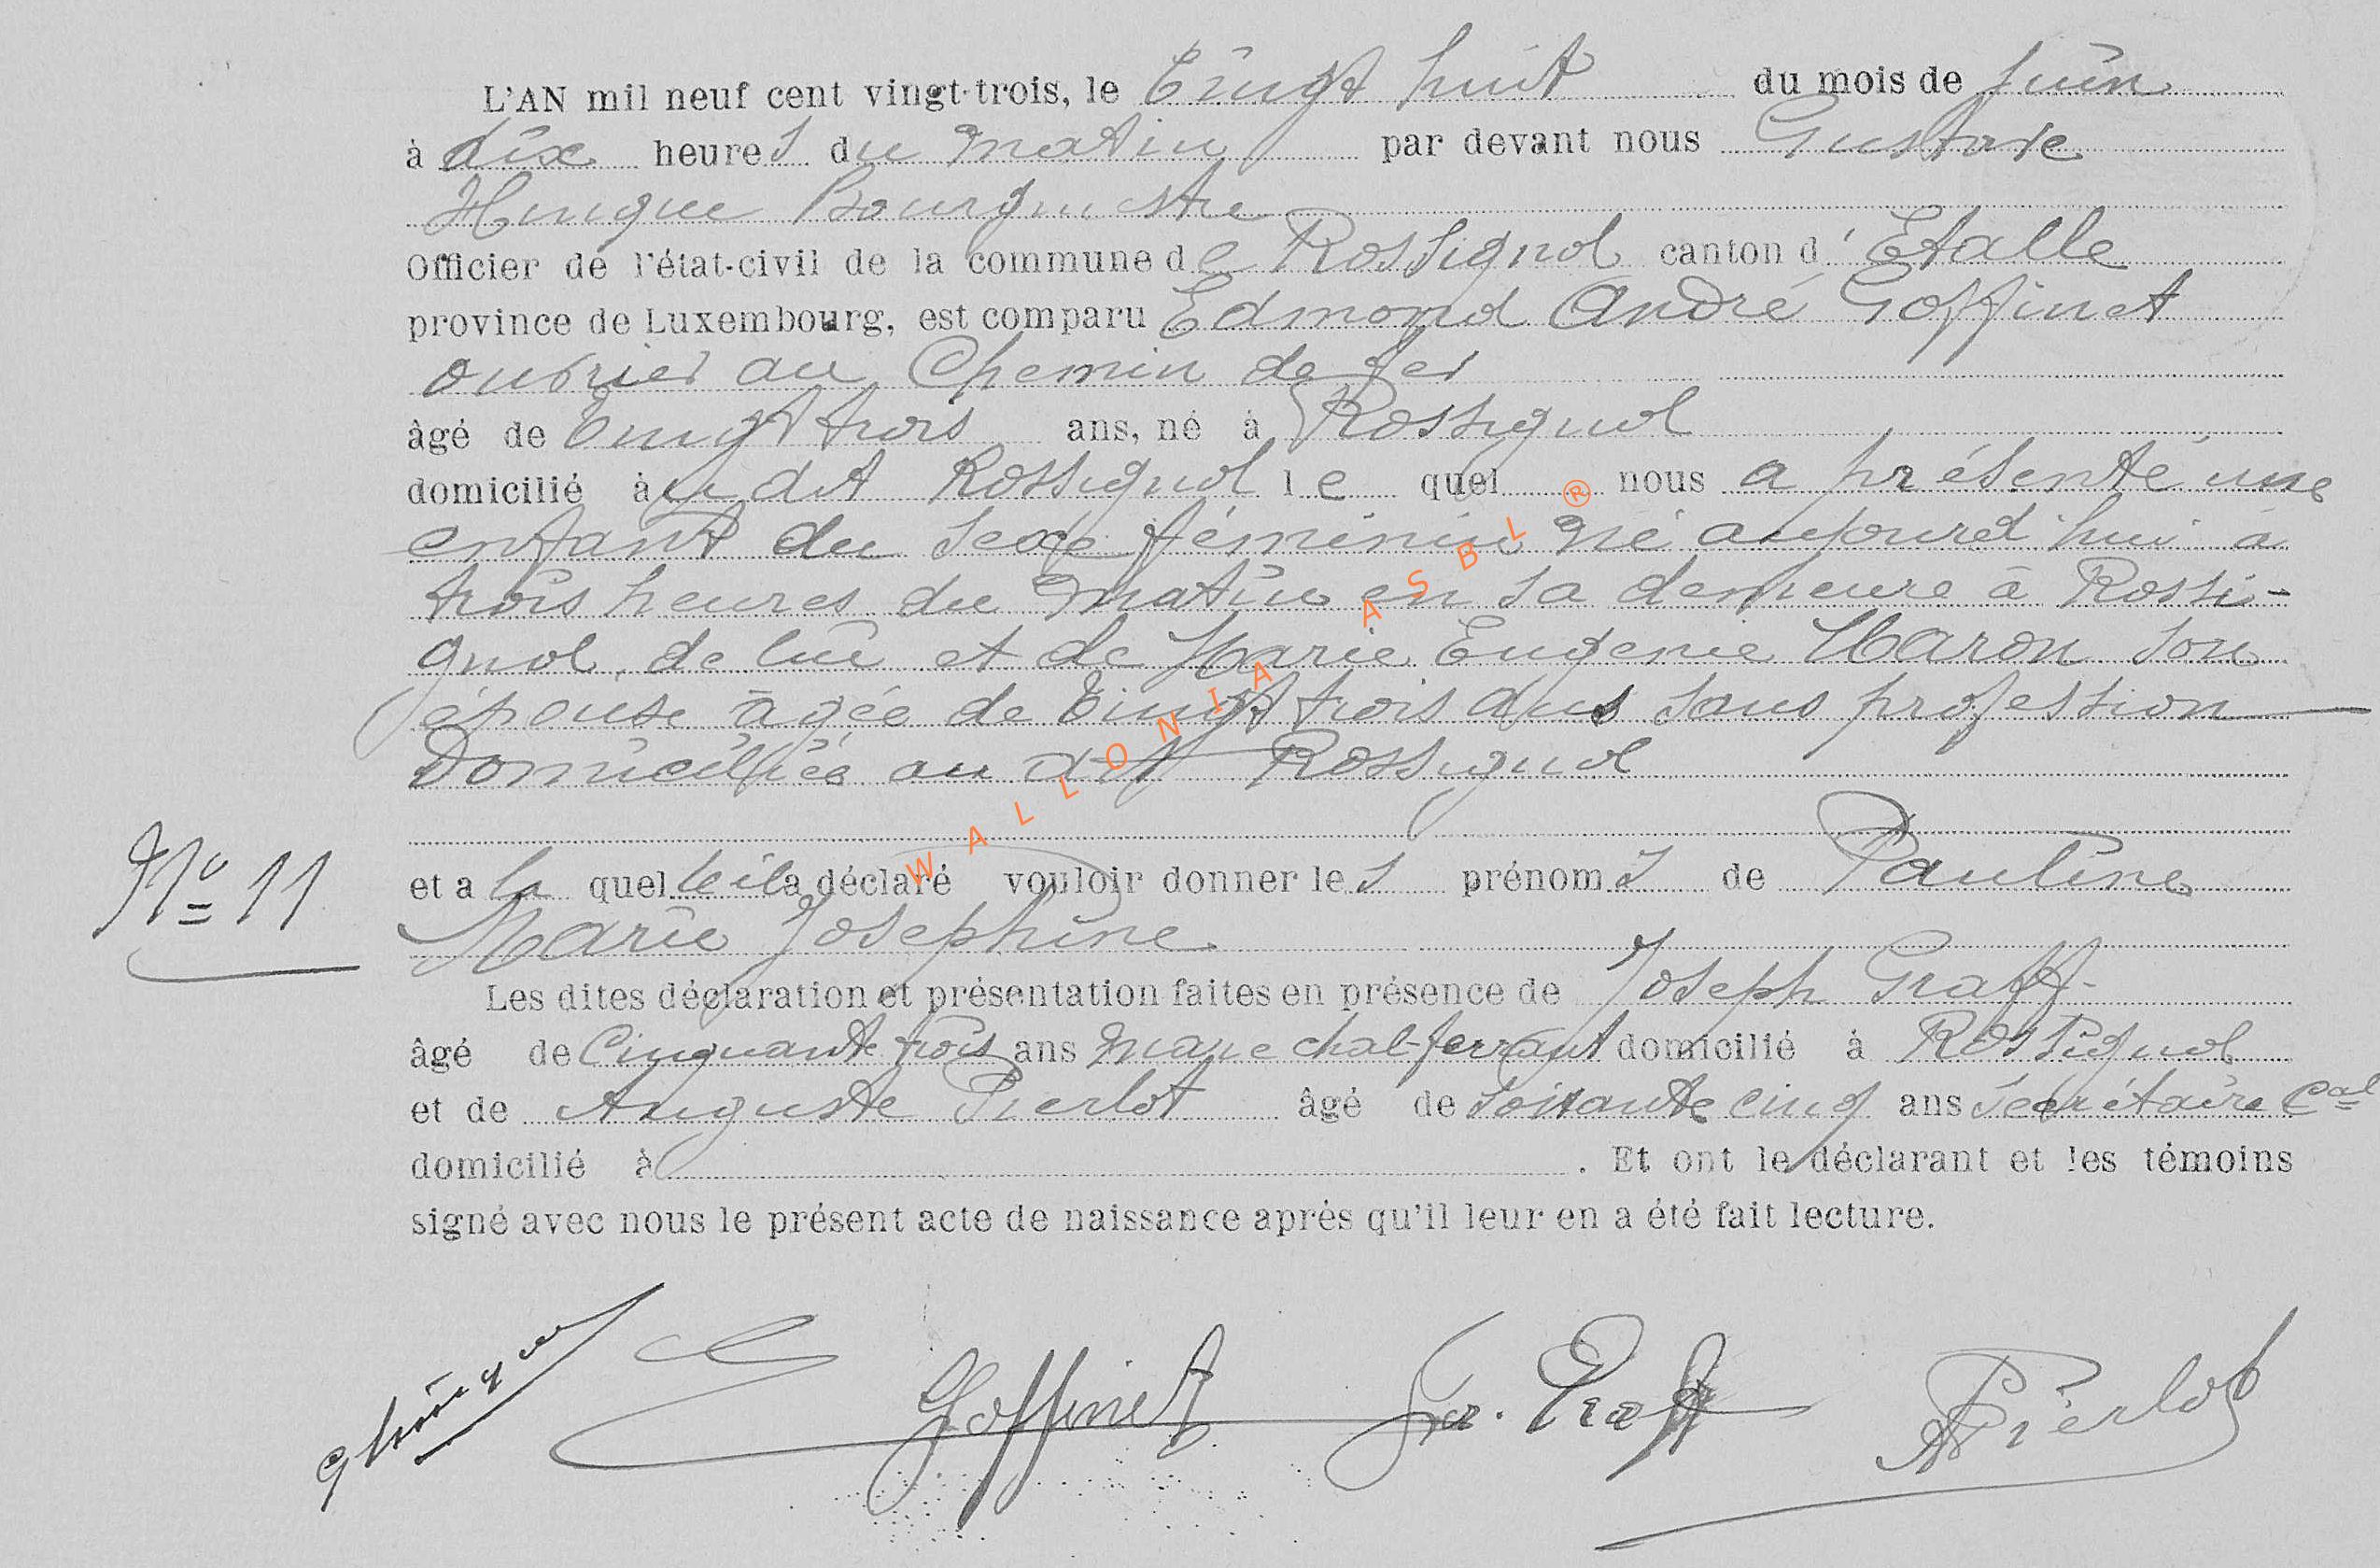 L'AN mil neuf cent vingt-trois, le Vingt huit du mois de Juin
à dix heures du matin par devant nous Gustave
Hinque Bourgmestre
Officier de l'état-civil de la commune de Rossignol canton d'Etalle
province de Luxembourg, est comparu Edmond André Goffinet
ouvrier au Chemin de fer
âgé de Vingt trois ans, né à Rossignol
domicilié au dit Rossignol le quel nous a présenté une
enfant du sexe féminin né aujourd'hui à
trois heures du matin en sa demeure à Rossi-
gnol, de lui et de Marie Eugenie Maron son
épouse âgée de Vingt trois ans sans profession
Domiciliée au dit Rossignol
N° 11
et a la quelle il a déclaré vouloir donner les prénoms de Pauline
Marie Josephine
Les dites déclaration et présentation faites en présence de Joseph Graff
âgé de Cinquante trois ans marechal-ferrant domicilié à Rossignol
et de Auguste Pierlot âgé de soixante cinq ans secrétaire Cal
domicilié à . Et ont le déclarant et les témoins
signé avec nous le présent acte de naissance après qu'il leur en a été fait lecture.
Goffinet Jos. Graff A Pierlot
WALLONIA ASBL ®